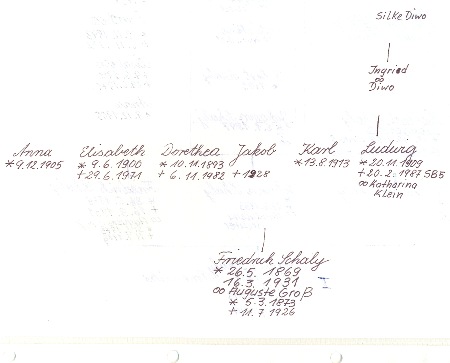 Silke Diwo
Ingried
∞
Diwo
Anna Elisabeth Dorethea Jakob Karl Ludwig
* 9.12.1905 * 9.6.1900 * 10.11.1893 * 13.8.1913 * 20.11.1909
+ 29.6.1971 + 6.11.1982 + 1928 + 20.2.1987 SB5
∞ Katharina
Klein
Friedrich Schaly
* 26.5. 1869
16.3. 1931 I
∞ Auguste Groß
* 5.3.1873
+ 11.7 1926